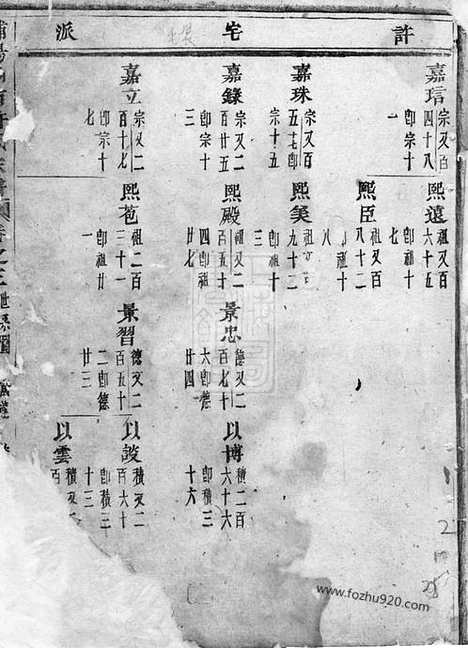 許宅派
嘉琂
宗又百
四十八
卽宗十
一
熙遠
祖又百
六十五
卽祖十
七
熙臣
祖又百
八十二
卽祖十
八
嘉珠
宗又百
五七
卽宗十
熙美
祖
九十二
三
嘉錄
宗又二
百廿五
卽宗十
三
熙殿
祖又二
百五十
四卽祖
廿七
景忠
德又二
百七十
六卽德
廿四
以博
積二百
六十六
卽積三
十六
嘉立
宗又二
百十七
卽宗十
七
熙苍
祖二百
三十一
卽祖廿
一
景習
德又二
百五十
二卽德
廿三
以鼓
積又二
百六十
卽積三
十三
以雲
積又二
百
卷之三
www.fozhu920.com